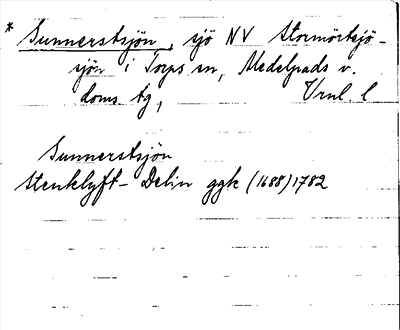 * Sunnerstsjön, sjö NV Stormörtsjö-
sjön i Torps sn, Medelpads v.
doms. tg, Vrnl l
Sunnerstsjön
Stenklyft- Delin ggk (1688) 1782